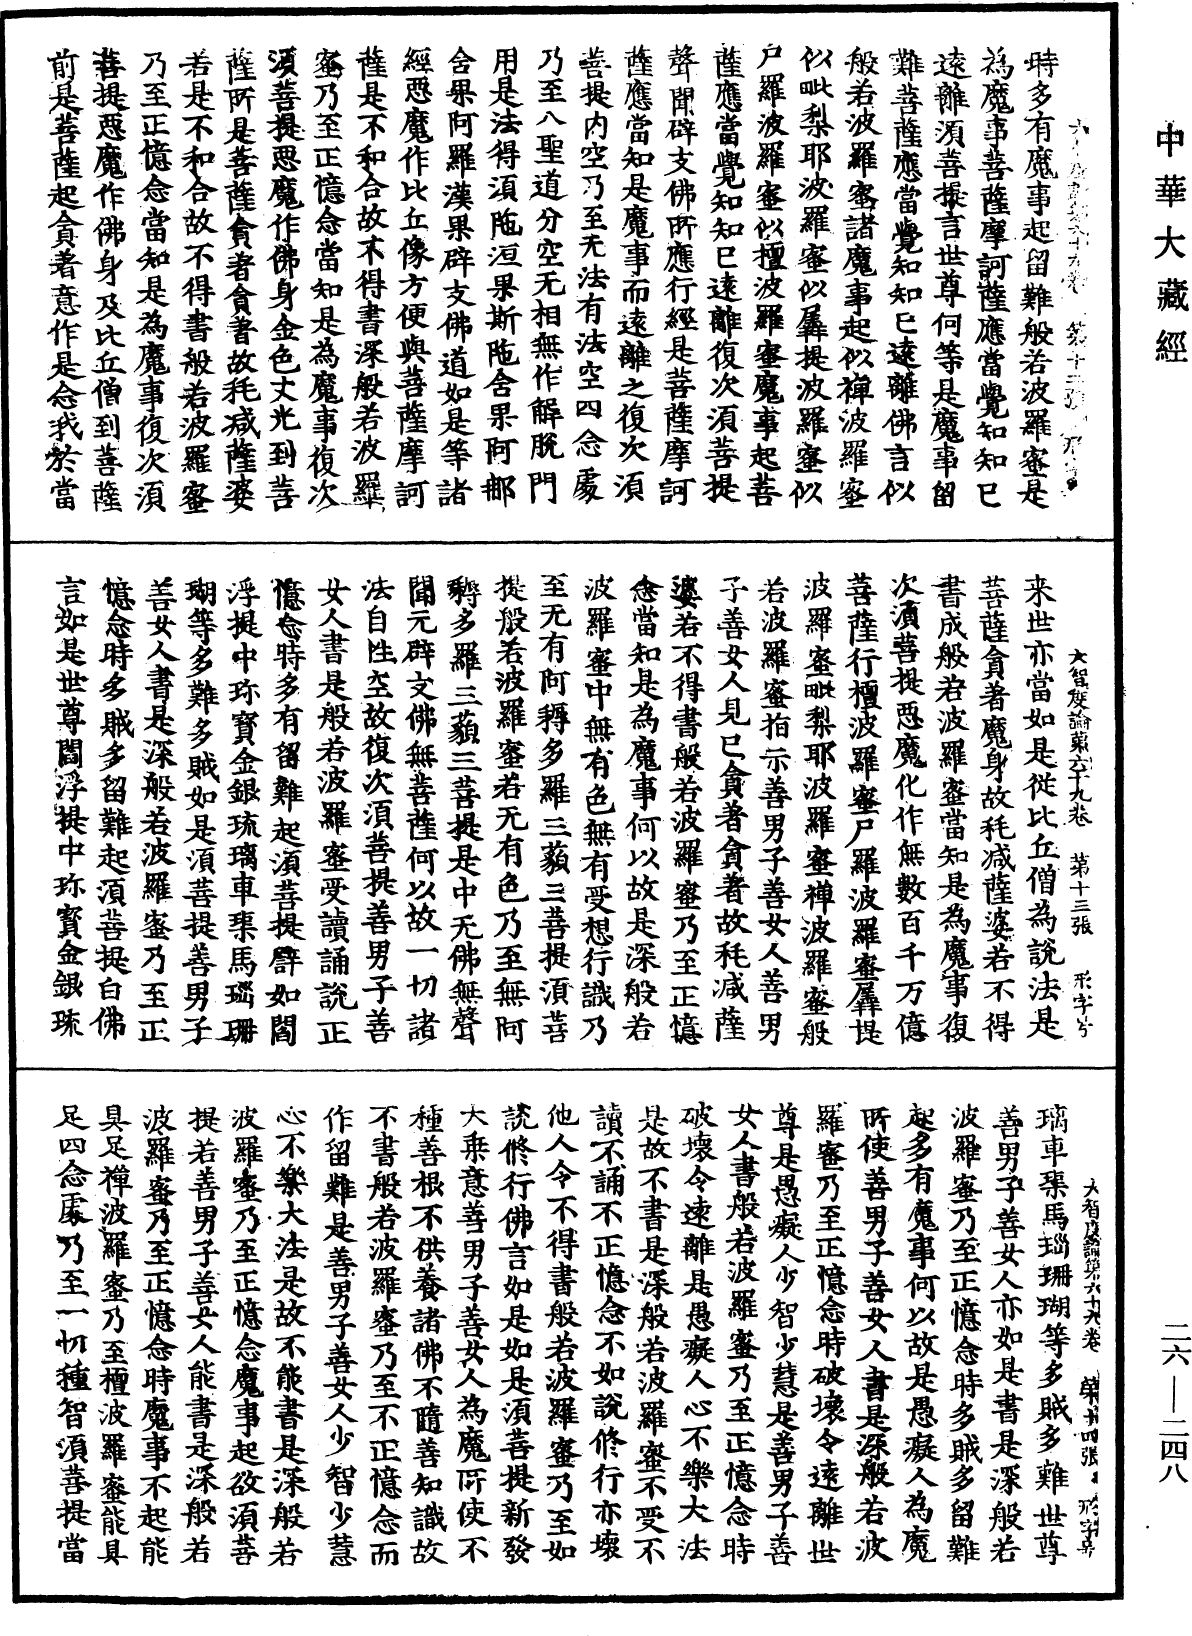 中華大藏經
二六—二四八
時多有魔事起留難般若波羅蜜是
為魔事菩薩摩訶薩應當覺知知已
遠離須菩提言世尊何等是魔事留
難菩薩應當覺知知已遠離佛言似
般若波羅蜜諸魔事起似禪波羅蜜
似毗梨耶波羅蜜似羼提波羅蜜似
尸羅波羅蜜似檀波羅蜜魔事起菩
薩應當覺知知已遠離復次須菩提
聲聞辟支佛所應行經是菩薩摩訶
薩應當知是魔事而遠離之復次須
菩提内空乃至无法有法空四念處
乃至八聖道分空无相無作解脫門
用是法得須陁洹果斯陁含果阿那
含果阿羅漢果辟支佛道如是等諸
經惡魔作比丘像方便與菩薩摩訶
薩是不和合故不得書深般若波羅
蜜乃至正憶念當知是為魔事復次
須菩提惡魔作佛身金色丈光到菩
薩所是菩薩貪著貪著故秏減薩婆
若是不和合故不得書般若波羅蜜
乃至正憶念當知是為魔事復次須
菩提惡魔作佛身及比丘僧到菩薩
前是菩薩起貪著意作是念我於當
大智度論第六十九卷　第十三張　形字号
来世亦當如是從比丘僧為說法是
菩薩貪著魔身故秏減薩婆若不得
書成般若波羅蜜當知是為魔事復
次須菩提惡魔化作無數百千万億
菩薩行檀波羅蜜尸羅波羅蜜羼提
波羅蜜毗梨耶波羅蜜禪波羅蜜般
若波羅蜜指示善男子善女人善男
子善女人見已貪著貪著故秏減薩
婆若不得書般若波羅蜜乃至正憶
念當知是為魔事何以故是深般若
波羅蜜中無有色無有受想行識乃
至无有阿耨多羅三藐三菩提須菩
提般若波羅蜜若无有色乃至無阿
耨多羅三藐三菩提是中无佛無聲
聞元辟支佛無菩薩何以故一切諸
法自性空故復次須菩提善男子善
女人書是般若波羅蜜受讀誦說正
憶念時多有留難起須菩提譬如閻
浮提中珎寳金銀琉璃車𤦲馬瑙珊
瑚等多難多賊如是須菩提善男子
善女人書是深般若波羅蜜乃至正
憶念時多賊多留難起須菩提白佛
言如是世尊閻浮提中珎寳金銀琉
大智度論第六十九卷　第十四張　形字号
璃車𤦲馬瑙珊瑚等多賊多難世尊
善男子善女人亦如是書是深般若
波羅蜜乃至正憶念時多賊多留難
起多有魔事何以故是愚癡人為魔
所使善男子善女人書是深般若波
羅蜜乃至正憶念時破壞令遠離世
尊是愚癡人少智少慧是善男子善
女人書般若波羅蜜乃至正憶念時
破壞令遠離是愚癡人心不樂大法
是故不書是深般若波羅蜜不受不
讀不誦不正憶念不如說修行亦壞
他人令不得書般若波羅蜜乃至如
說修行佛言如是如是須菩提新發
大乘意善男子善女人為魔所使不
種善根不供養諸佛不隨善知識故
不書般若波羅蜜乃至不正憶念而
作留難是善男子善女人少智少慧
心不樂大法是故不能書是深般若
波羅蜜乃至正憶念魔事起故須菩
提若善男子善女人能書是深般若
波羅蜜乃至正憶念時魔事不起能
具足禪波羅蜜乃至檀波羅蜜能具
足四念處乃至一切種智須菩提當